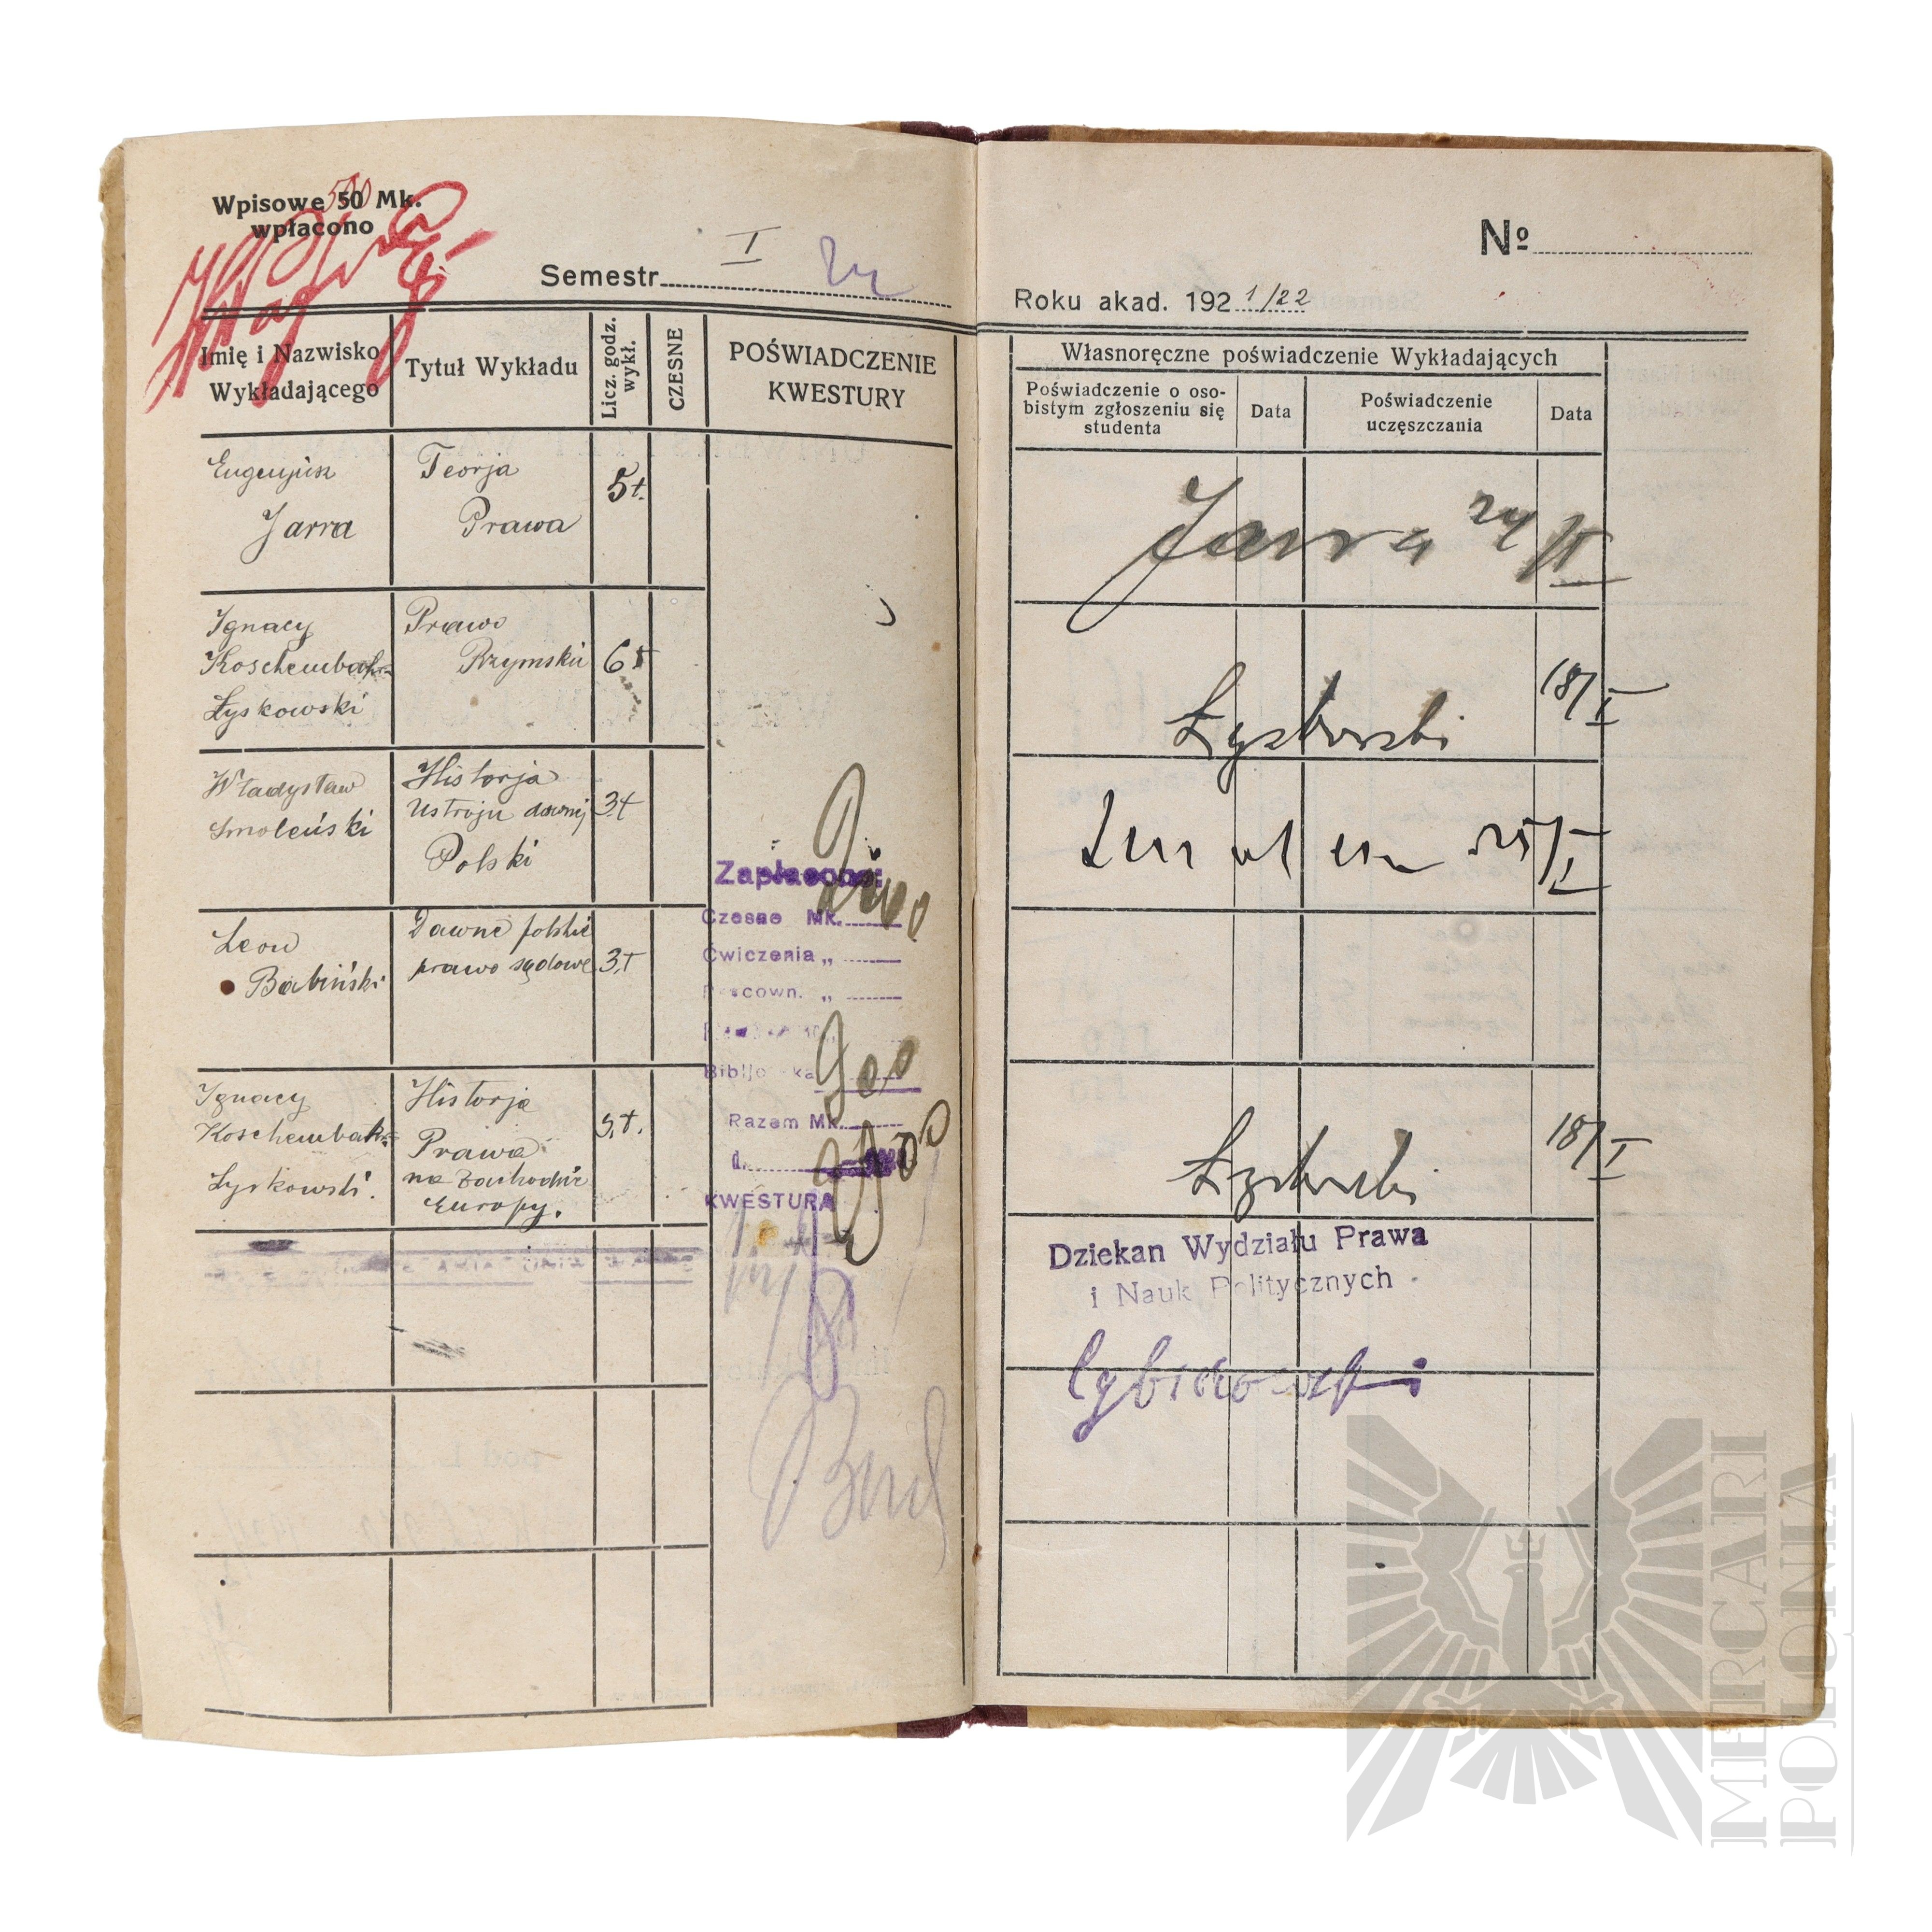 Wpisowe 50 Mk.
500
wpłacono
Semestr I
Imię i Nazwisko
Wykładającego
Tytuł Wykładu
Licz. godz.
wykł.
CZESNE
POŚWIADCZENIE
KWESTURY
Eugenjusz
Jarra
Teorja
Prawa
5t.
Ignacy
Koschembahr
Łyskowski
Prawo
Rzymskie
6t
Władysław
Smoleński
Historja
Ustroju dawnej
Polski
3t
Leon
Babiński
Dawne polskie
prawo sądowe
3t
Ignacy
Koschembahr
Łyskowski.
Historja
Prawa
na Zachodzie
Europy.
5t.
Zapłacono:
Czesne Mk.
Ćwiczenia „
Pracown. „
Bibljoteka
900
Razem Mk.
d.
KWESTURA
Nº
Roku akad. 1921/22
Własnoręczne poświadczenie Wykładających
Poświadczenie o oso-
bistym zgłoszeniu się
studenta
Data
Poświadczenie
uczęszczania
Data
Jarra 24/II
Łyskowski 18/I
25/I
Łyskowski 18/I
Dziekan Wydziału Prawa
i Nauk Politycznych
MERCARI
POLONIA